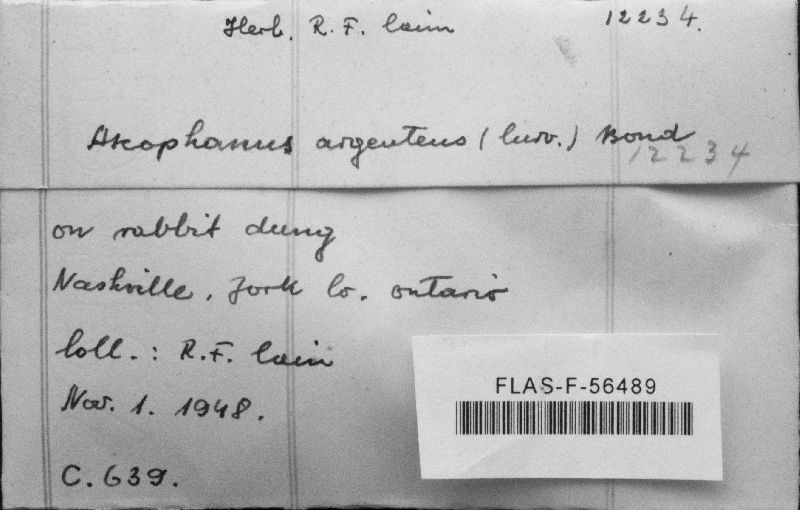 Herb. R. F. Cain 12234.
Ascophanus argenteus (Curr.) Boud
12234
on rabbit dung
Nashville, York Co. Ontario
Coll.: R.F. Cain
Nov. 1. 1948.
C. 639.
FLAS-F-56489